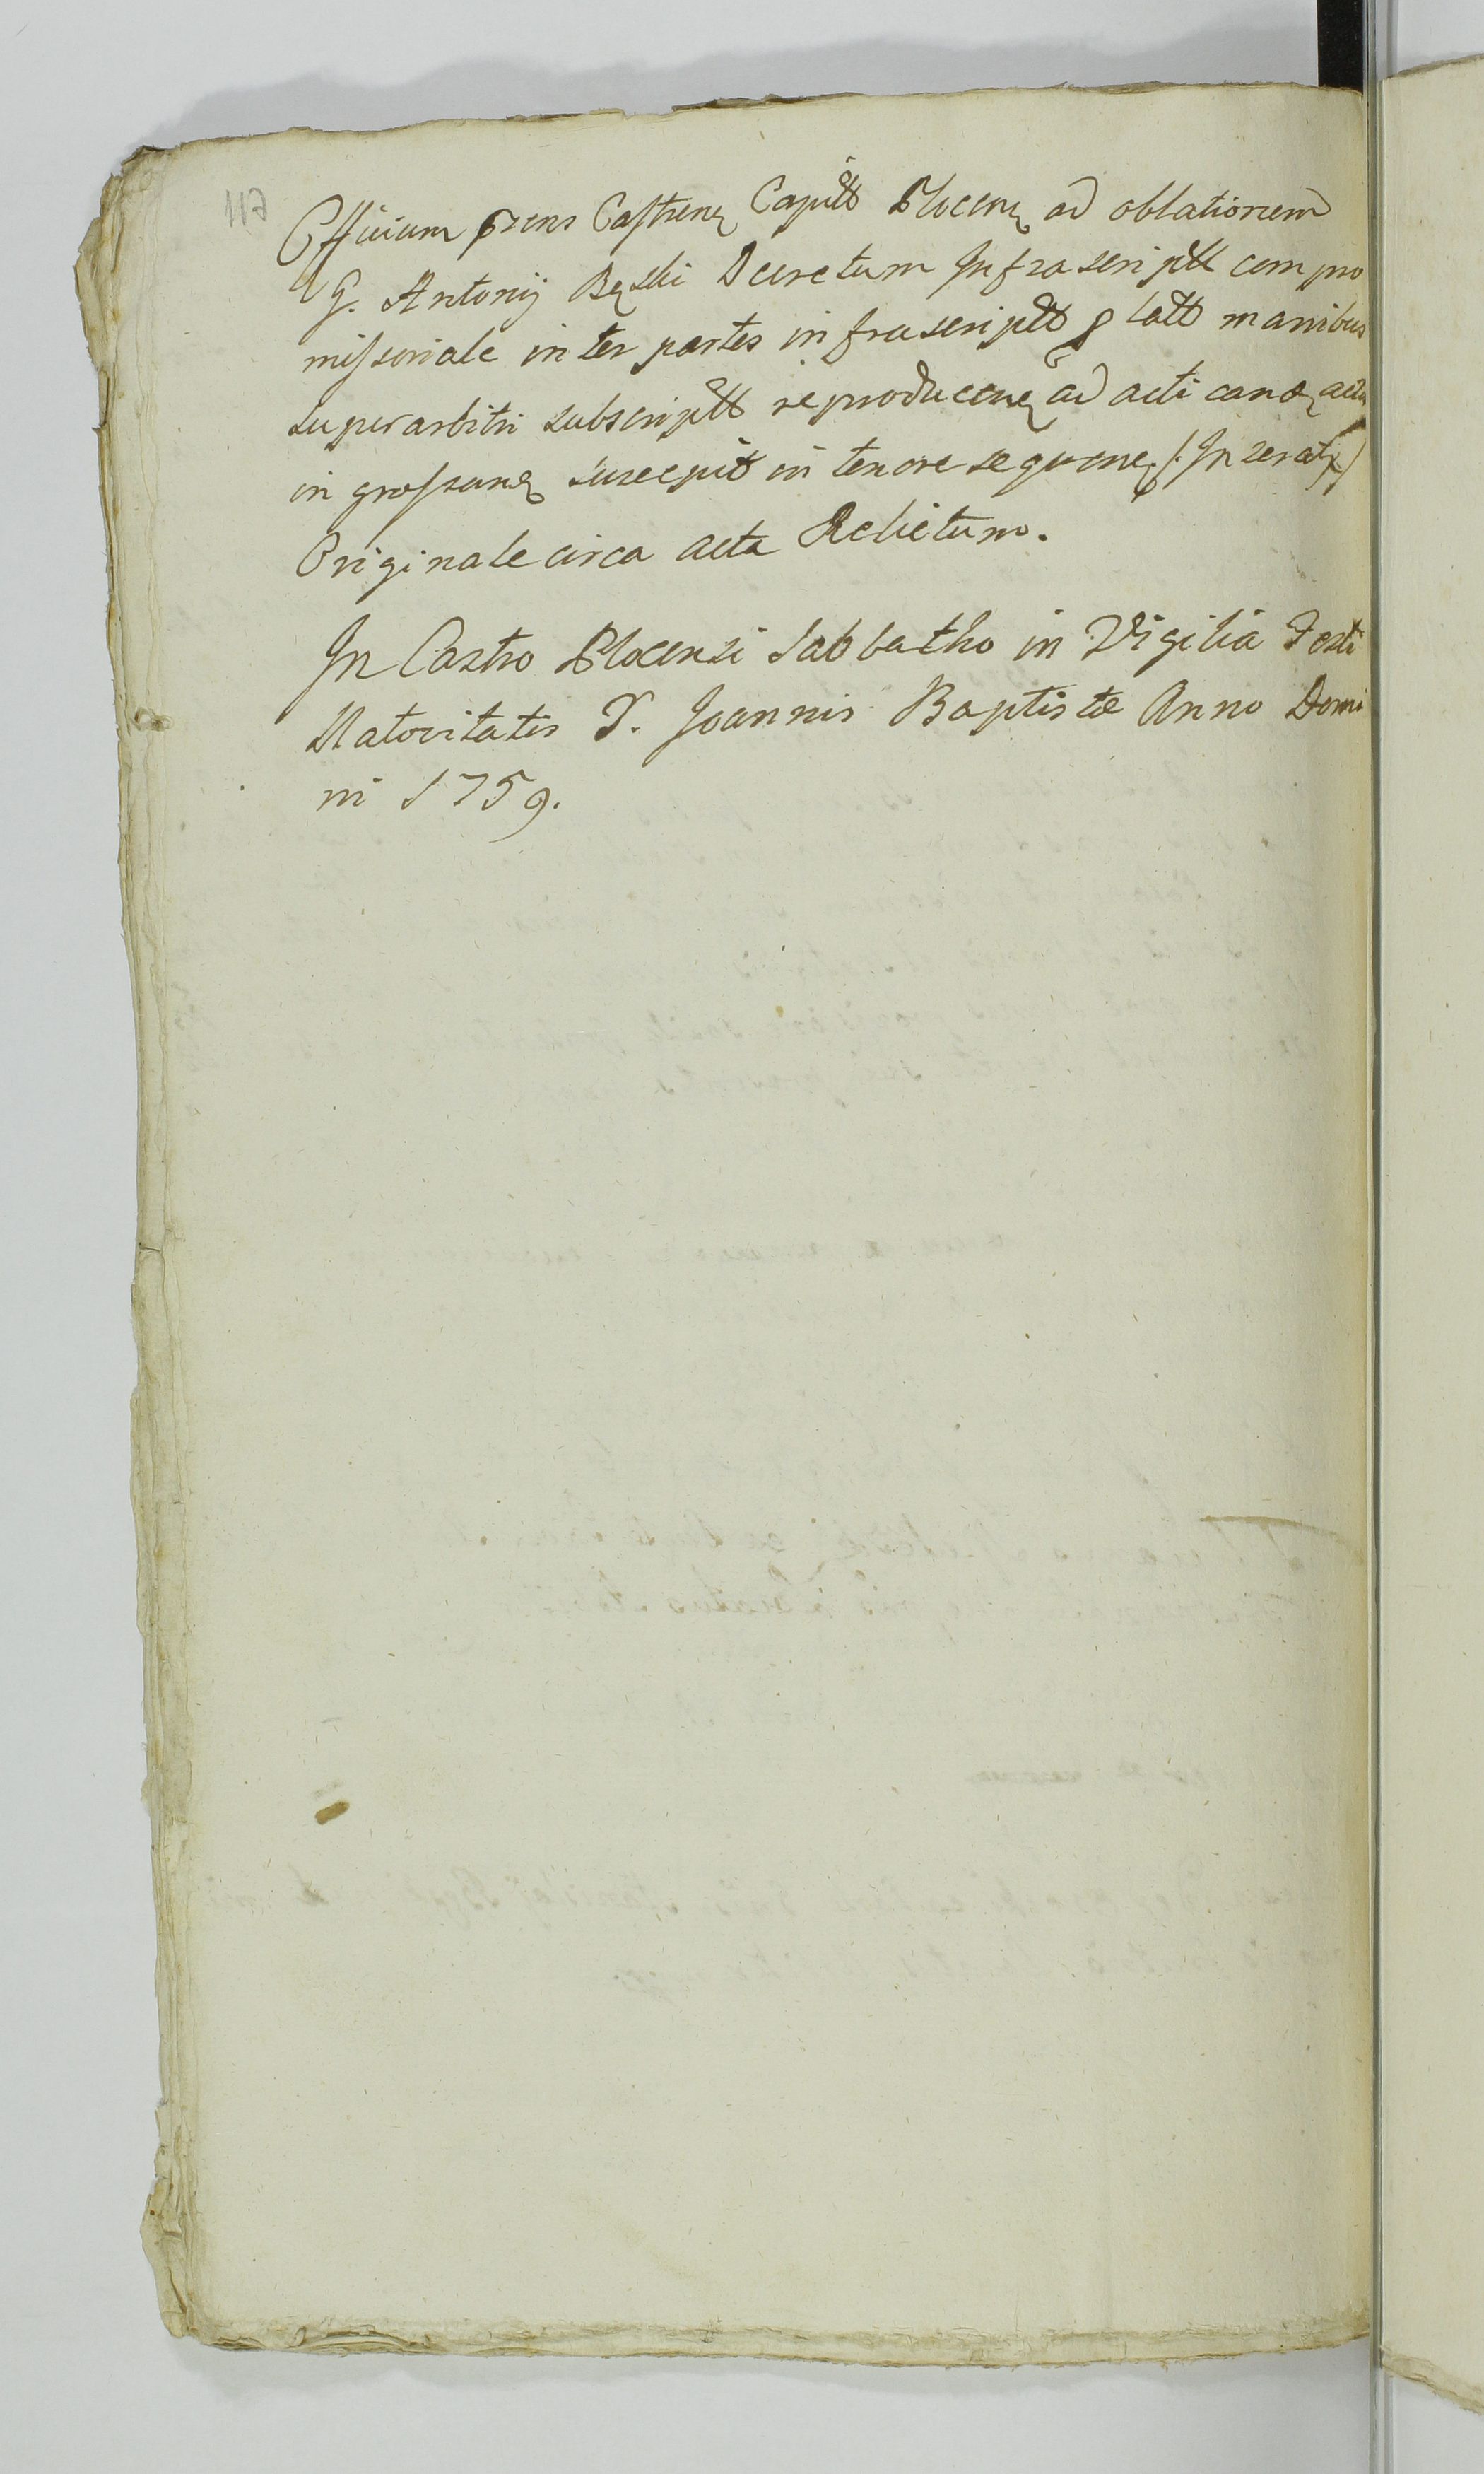 117
Officium prens Castren Capitt Plocen ad oblationem
G. Antonij Bęski Decretum Infrascriptt compro
missoriale inter partes infrascriptt latt manibus
superarbitri subscriptt reproducen ad acticand acta
in grossand suscepit in tenore sequen (: Inserat :)
Originale circa acta Relictum.
In Castro Plocensi Sabbatho in Vigilia Festi
Natovitatis S. Joannis Baptistæ Anno Domi
ni 1759.